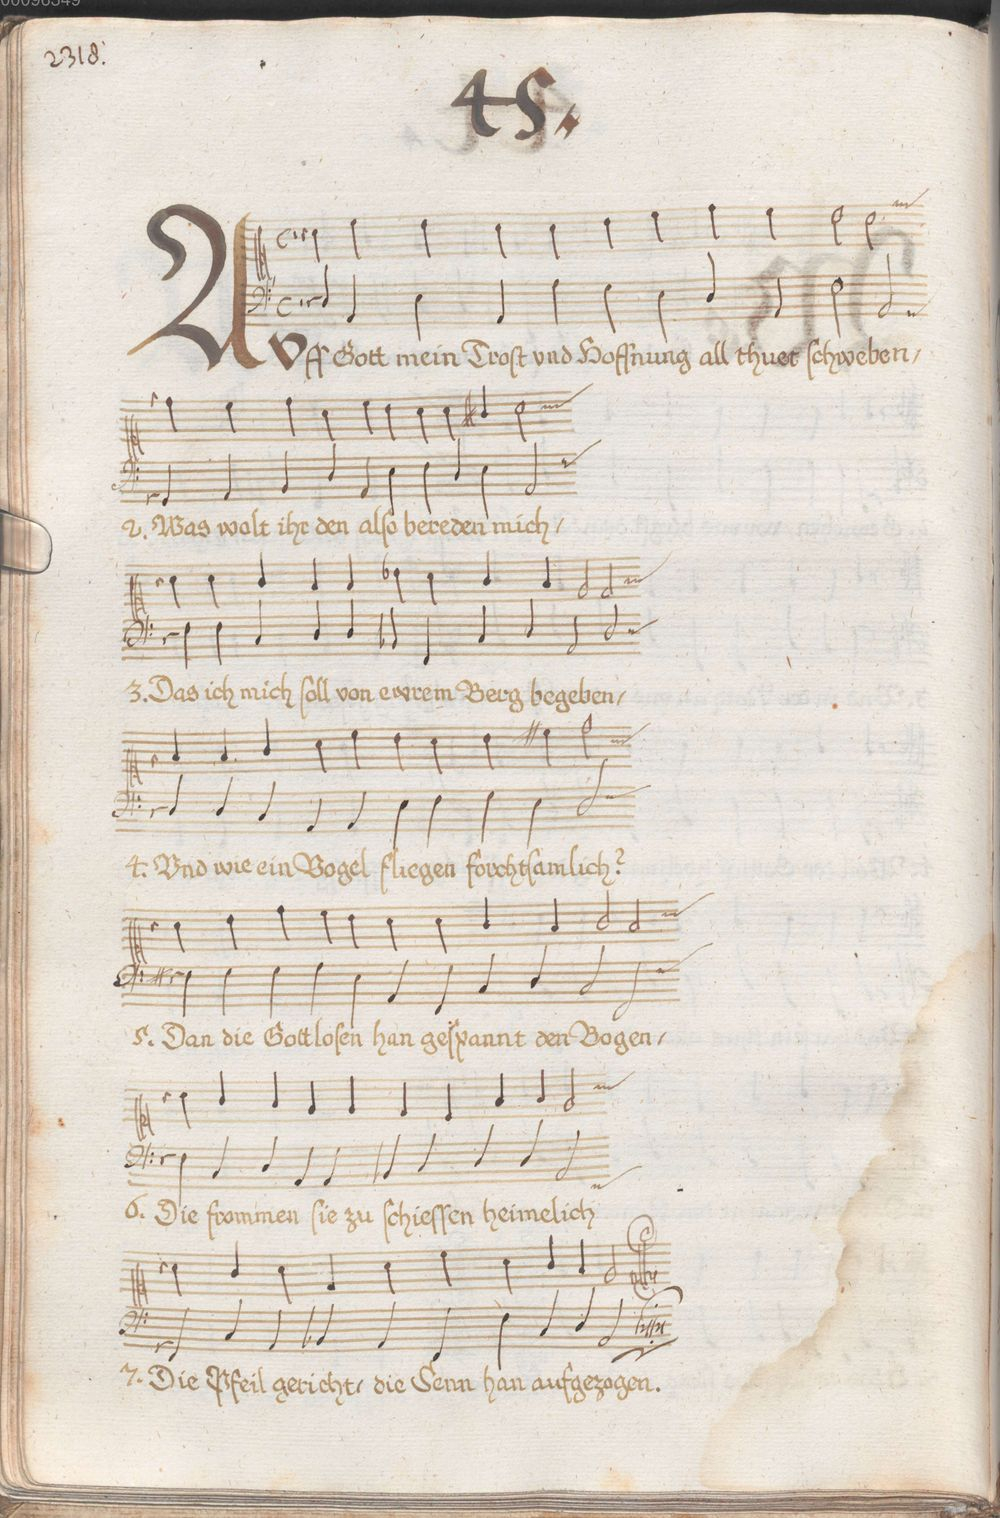 00096549
2318.
45.
AVff Gott mein Trost vnd Hoffnung all thuet schweben/
2. Was wolt ihr den also bereden mich/
3. Das ich mich soll von ewrem Berg begeben/
4. Vnd wie ein Vogel fliegen forchtsamlich?
5. Dan die Gottlosen han gespannt den Bogen/
6. Die frommen sie zu schiessen heimelich
7. Die Pfeil gericht/ die Senn han aufgezogen.